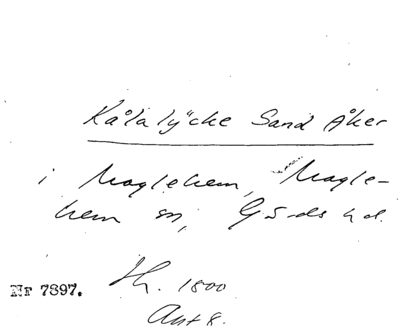 Kåla lycke Sand Åker
i Maglehem, Magle-
hem sn, Gärds hd.
Nr 7397. Sk. 1800
Akt 8.